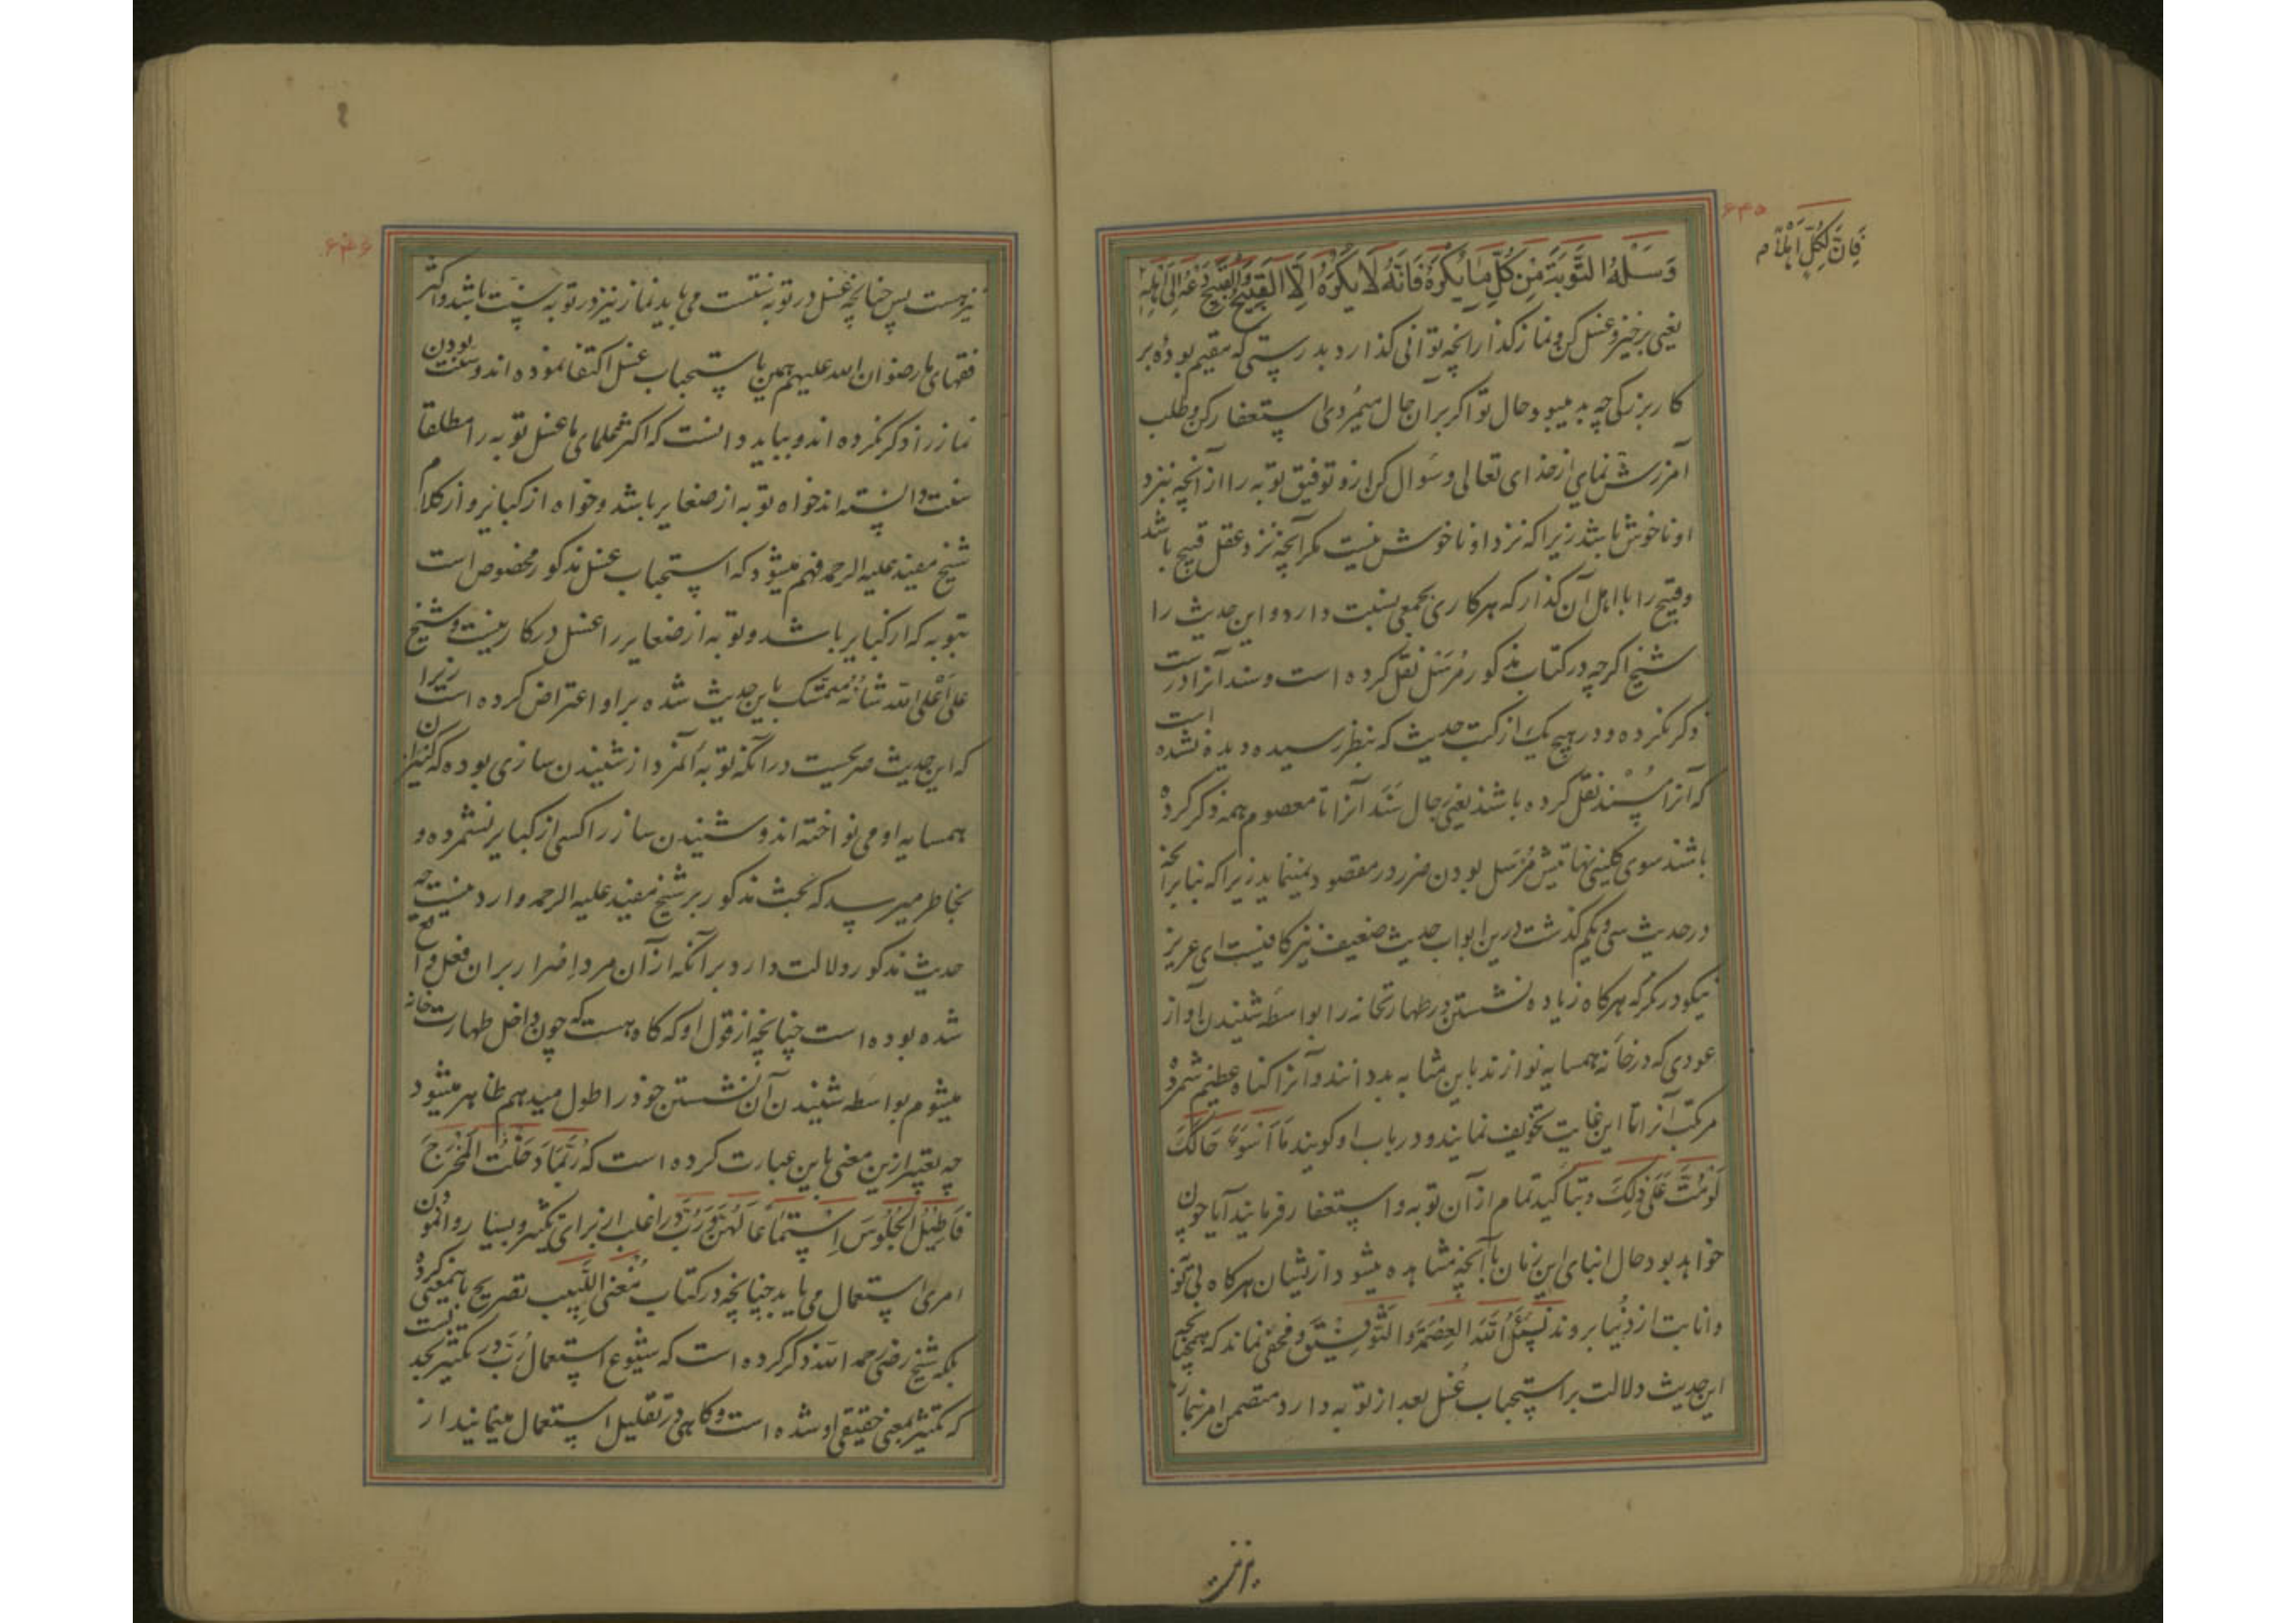 ۶۴۵
فَاِنَّ لِکُلٍّ اَهْلًا م
وَسَلْهُ التَّوْبَةَ مِنْ کُلِّ مَا یُکْرَهُ فَاِنَّهُ لَا یَکْرَهُ اِلَّا الْقَبِیْحَ وَالْقَبِیْحَ دَعْهُ اِلٰی اَهْلِهِ
یعنی برخیز و غسل کن و نماز کذار آنچه توانی کذارد بدرستی که مقیم بودهٔ بر
کار بزرکی چه بد میبود حال تو اکر بر آن حال میمُردی استغفار کن و طلب
آمرزش نمای از خدای تعالی و سؤال کن ازو توفیق توبه را از آنچه نزد
او ناخوش باشد زیرا که نزد او ناخوش نیست مکر آنچه نزد عقل قبیح باشد
و قبیح را با اهل آن کذار که هر کاری بجمعی نسبت دارد و این حدیث را
شیخ اکرچه در کتاب مذکور مُرسَل نقل کرده است و سند آنرا درست
ذکر نکرده و در هیچ یک از کتب حدیث که بنظر رسیده دیده نشده است
که آنرا مُسْنَد نقل کرده باشند یعنی رجال سَنَد آنرا تا معصوم همه ذکر کرده
باشند سوی کلینی نهایتش مُرسَل بودن ضرر در مقصود نمینماید زیرا که بنابر آنچه
در حدیث سی و یکم کذشت درین ابواب حدیث ضعیف نیز کافیست ای عزیز
نیکو درنکر که هرکاه زیاده نشستن در طهارتخانه را بواسطه شنیدن آواز
عودی که در خانه همسایه نوازند باین مثابه بد دانند و آنرا کناه عظیم شمرده
مرتکب آنرا تا این غایت تخویف نمایند و در باب او کویند مَا اَسْوَءَ حَالَکَ
لَوْ مُتَّ عَلٰی ذٰلِکَ و بتاکید تمام از آن توبه و استغفار فرمایند آیا چون
خواهد بود حال ابنای این زمان با آنچه مشاهده میشود ازیشان هرکاه بی توبه
و انابت از دنیا بروند نَسْئَلُ اللّهَ الْعِصْمَةَ وَالتَّوْفِیْقَ و مخفی نماند که همچنانچه
این حدیث دلالت بر استحباب غُسل بعد از توبه دارد متضمن امر بنماز
نیز هست
۶۴۶
نیز هست پس چنانچه غسل در توبه سنّت می باید نماز نیز در توبه سنّت باشد و اکثر
فقهای ما رضوان الله علیهم همین باستحباب غسل اکتفا نموده اند و سنّت بودن
نماز را ذکر نکرده اند و بباید دانست که اکثر علمای ما غسل توبه را مطلقا
سنت دانسته اند خواه توبه از صغایر باشد و خواه از کبایر و از کلام
شیخ مفید علیه الرحمه فهم میشود که استحباب غسل مذکور مخصوص است
بتوبه که از کبایر باشد و توبه از صغایر را غسل در کار نیست و شیخ
علی اَعْلَی اللّه شانُه متمسّک باین حدیث شده بر او اعتراض کرده است زیرا
که این حدیث صریحست در آنکه توبه آنمرد از شنیدن سازی بوده که کنیزان
همسایه او می نواخته اند و شنیدن ساز را کسی از کبایر نشمرده و
بخاطر میرسد که بحث مذکور بر شیخ مفید علیه الرحمه وارد نیست چه
حدیث مذکور دلالت دارد بر آنکه از آن مرد اِصْرار بر آن فعل واقع
شده بوده است چنانچه از قول او که کاه هست که چون داخل طهارت خانه
میشوم بواسطه شنیدن آن نشستن خود را طول میدهم ظاهر میشود
چه تعبیر ازین معنی باین عبارت کرده است که رُبَّمَا دَخَلْتُ الْمَخْرَجَ
فَاُطِیْلُ الْجُلُوسَ اِسْتِمَاعًا لَهُنَّ و رُبَّ در اغلب از برای تکثیر و بسیار وانمودن
امری استعمال می یابد چنانچه در کتاب مُغْنِی اللَّبِیب تصریح باینمعنی کرده
بلکه شیخ رضی رحمه اللّه ذکر کرده است که شیوع استعمال رُبَّ در تکثیر بحدیست
که تکثیر معنی حقیقی او شده است و کاهی در تقلیل استعمال مینمایند از